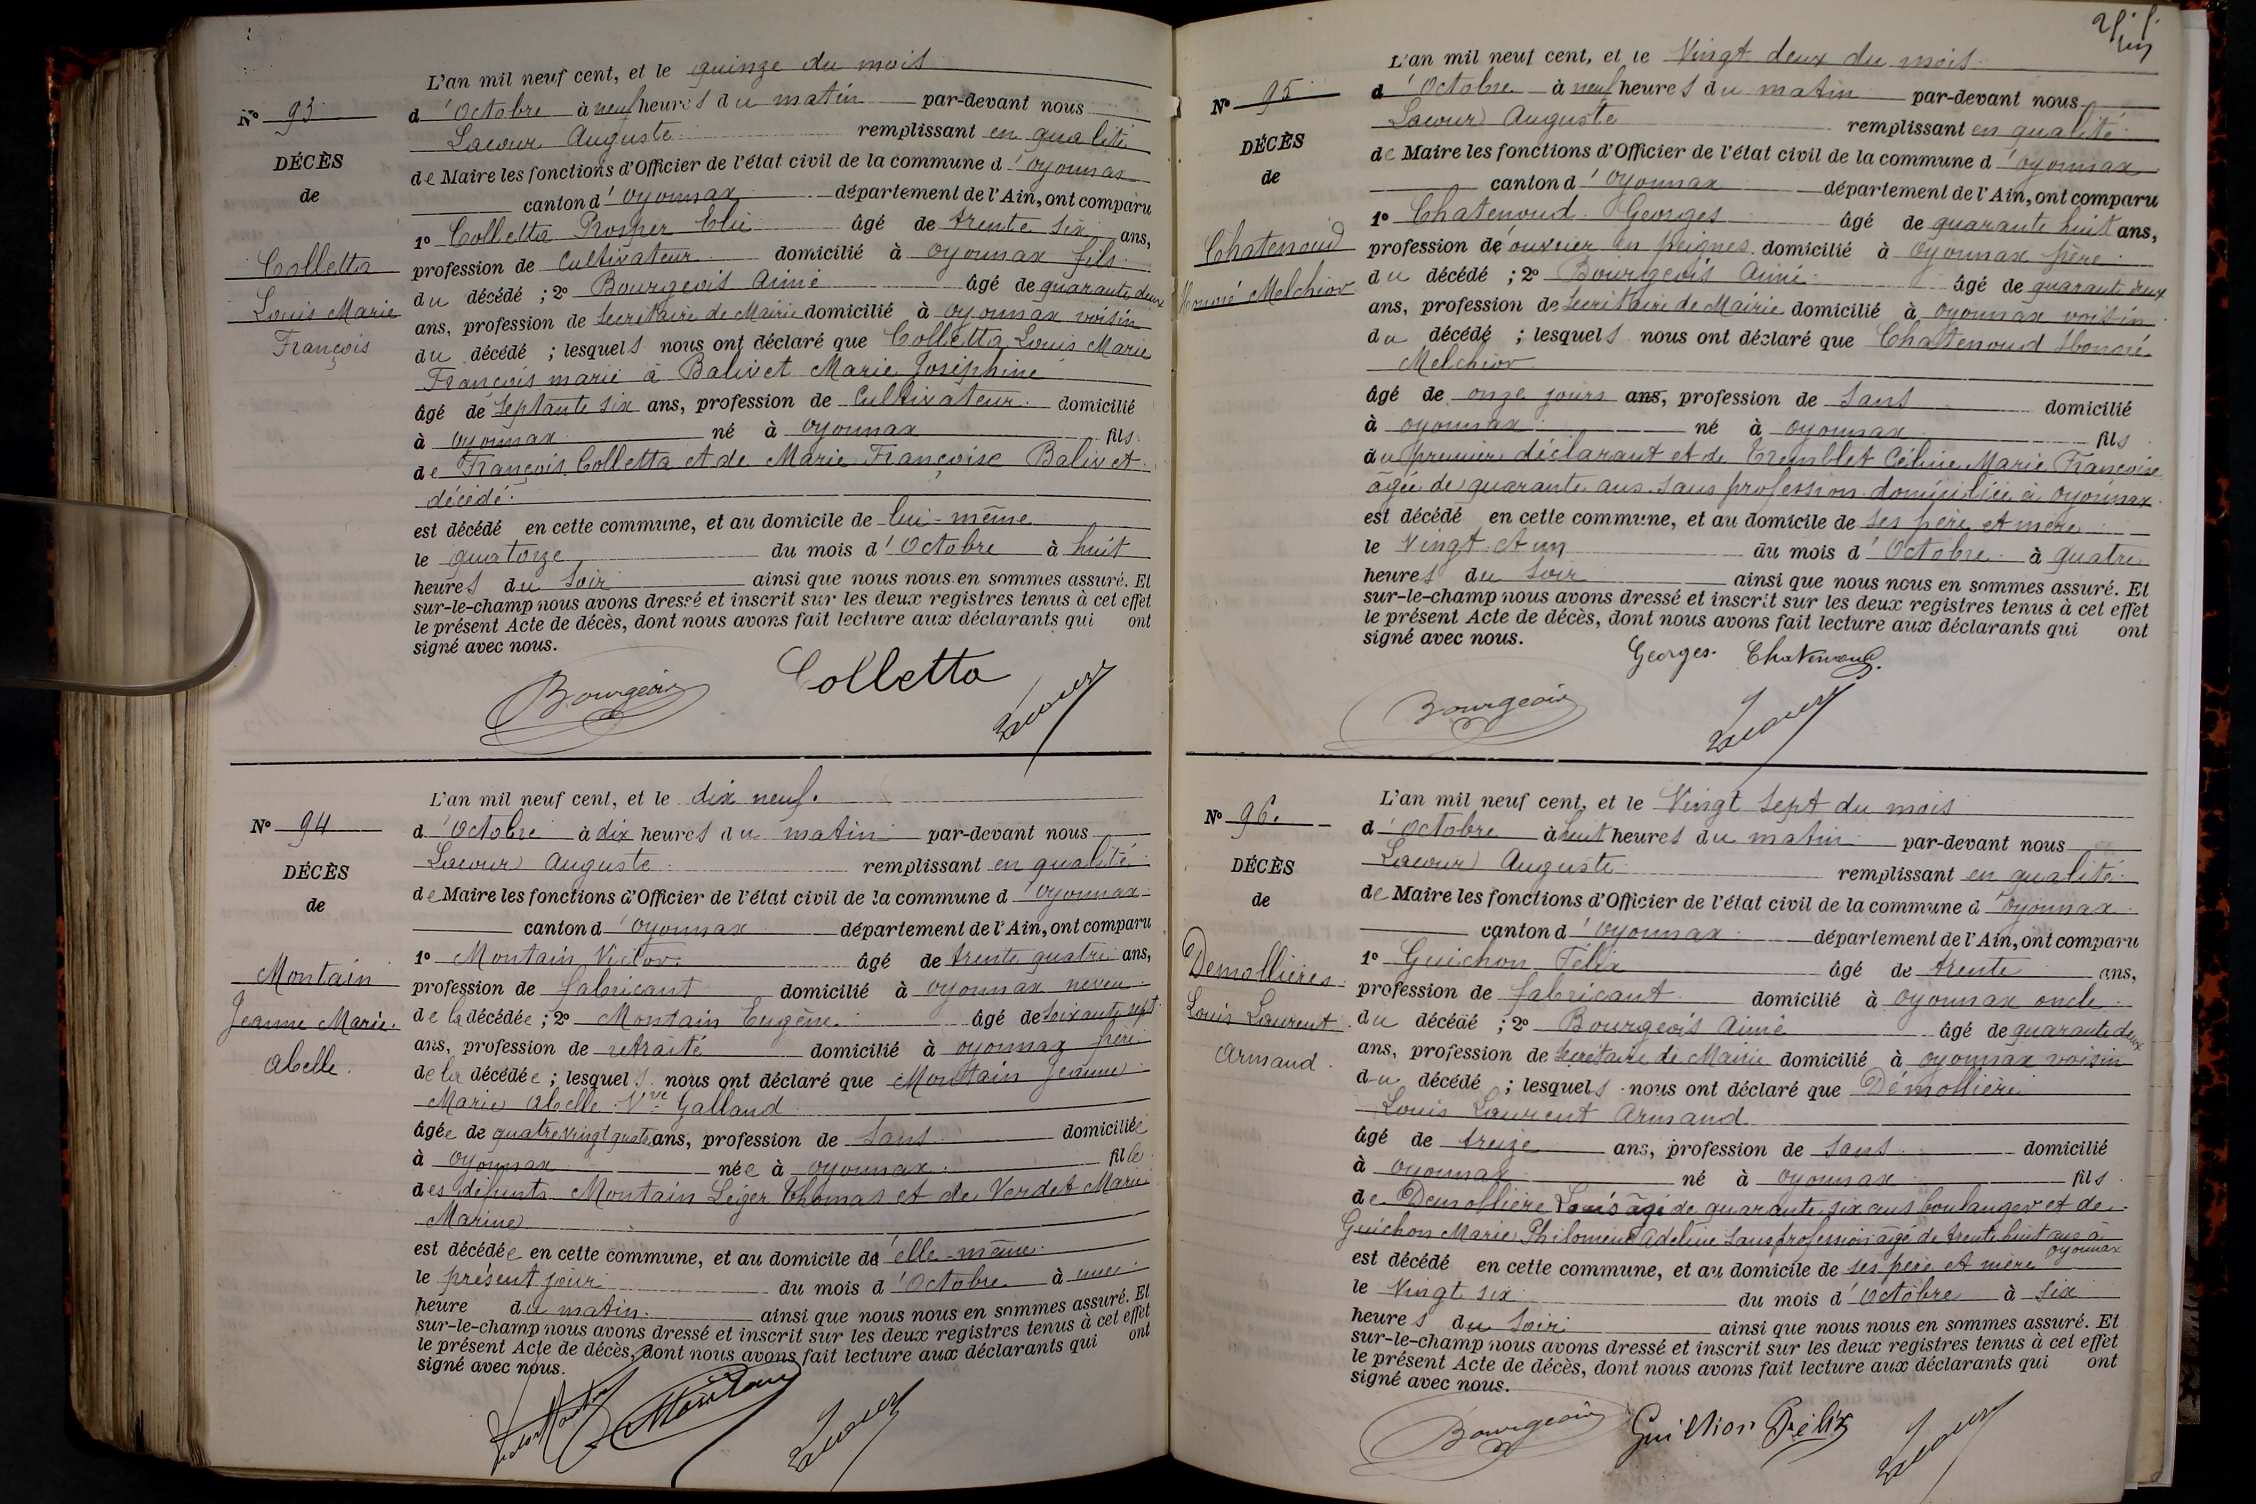 L'an mil neuf cent, et le quinze du mois
N° 93
d'Octobre à neuf heures du matin par-devant nous
Lacour Auguste remplissant en qualité
DÉCÈS
de Maire les fonctions d'Officier de l'état civil de la commune d'oyonnax
de
canton d'oyonnax département de l'Ain, ont comparu
1° Colletta Prosper Elie âgé de trente six ans,
Colletta
profession de Cultivateur domicilié à oyonnax fils
Louis Marie
du décédé ; 2° Bourgeois Aimé âgé de quarante deux
François
ans, profession de Secrétaire de Mairie domicilié à oyonnax voisin
du décédé ; lesquels nous ont déclaré que Colletta Louis Marie
François marié à Balivet Marie Joséphine
âgé de septante six ans, profession de Cultivateur domicilié
à oyonnax né à oyonnax fils
de François Colletta et de Marie Françoise Balivet
décédé.
est décédé en cette commune, et au domicile de lui-même
le quatorze du mois d'Octobre à huit
heures du soir ainsi que nous nous en sommes assuré. Et
sur-le-champ nous avons dressé et inscrit sur les deux registres tenus à cet effet
le présent Acte de décès, dont nous avons fait lecture aux déclarants qui ont
signé avec nous.
Bourgeois Colletta Lacour
L'an mil neuf cent, et le dix neuf.
N° 94
d'Octobre à dix heures du matin par-devant nous
Lacour Auguste remplissant en qualité
DÉCÈS
de Maire les fonctions d'Officier de l'état civil de la commune d'oyonnax
de
canton d'oyonnax département de l'Ain, ont comparu
1° Montain Victor âgé de trente quatre ans,
Montain
profession de fabricant domicilié à oyonnax neveu
Jeanne Marie
de la décédée ; 2° Montain Eugène âgé de soixante sept
abelle.
ans, profession de retraité domicilié à oyonnax frère
de la décédée ; lesquels nous ont déclaré que Montain Jeanne
Marie abelle Vve Galland
âgée de quatre vingt quatre ans, profession de sans domiciliée
à oyonnax née à oyonnax fille
des défunts Montain Léger Thomas et de Verdet Marie
Marine
est décédée en cette commune, et au domicile de elle-même
le présent jour du mois d'Octobre à une
heure du matin ainsi que nous nous en sommes assuré. Et
sur-le-champ nous avons dressé et inscrit sur les deux registres tenus à cet effet
le présent Acte de décès, dont nous avons fait lecture aux déclarants qui ont
signé avec nous.
Montain Lacour
L'an mil neuf cent, et le Vingt deux du mois
N° 95
d'Octobre à neuf heures du matin par-devant nous
Lacour Auguste remplissant en qualité
DÉCÈS
de Maire les fonctions d'Officier de l'état civil de la commune d'oyonnax
de
canton d'oyonnax département de l'Ain, ont comparu
1° Chatenoud Georges âgé de quarante huit ans,
Chatenoud
profession de ouvrier en peignes domicilié à oyonnax père
Honoré Melchior
du décédé ; 2° Bourgeois Aimé âgé de quarante deux
ans, profession de Secrétaire de Mairie domicilié à oyonnax voisin
du décédé ; lesquels nous ont déclaré que Chatenoud Honoré
Melchior
âgé de onze jours ans, profession de sans domicilié
à oyonnax né à oyonnax fils
du premier déclarant et de Tremblet Céline Marie Françoise
âgée de quarante ans sans profession domiciliée à oyonnax
est décédé en cette commune, et au domicile de ses père et mère
le Vingt et un du mois d'Octobre à quatre
heures du soir ainsi que nous nous en sommes assuré. Et
sur-le-champ nous avons dressé et inscrit sur les deux registres tenus à cet effet
le présent Acte de décès, dont nous avons fait lecture aux déclarants qui ont
signé avec nous.
Georges Chatenoud
Bourgeois Lacour
L'an mil neuf cent, et le Vingt sept du mois
N° 96.
d'Octobre à huit heures du matin par-devant nous
Lacour Auguste remplissant en qualité
DÉCÈS
de Maire les fonctions d'Officier de l'état civil de la commune d'oyonnax
de
canton d'oyonnax département de l'Ain, ont comparu
1° Guichon Félix âgé de trente ans,
Demollières
profession de fabricant domicilié à oyonnax oncle
Louis Laurent
du décédé ; 2° Bourgeois Aimé âgé de quarante deux
Armand.
ans, profession de Secrétaire de Mairie domicilié à oyonnax voisin
du décédé ; lesquels nous ont déclaré que Démollière
Louis Laurent Armand
âgé de treize ans, profession de sans domicilié
à oyonnax né à oyonnax fils
de Demollière Louis âgé de quarante six ans boulanger et de
Guichon Marie Philomene Adeline sans profession âgé de trente huit ans à
oyonnax
est décédé en cette commune, et au domicile de ses père et mère
le Vingt six du mois d'Octobre à six
heures du soir ainsi que nous nous en sommes assuré. Et
sur-le-champ nous avons dressé et inscrit sur les deux registres tenus à cet effet
le présent Acte de décès, dont nous avons fait lecture aux déclarants qui ont
signé avec nous.
Bourgeois Guichon Félix Lacour